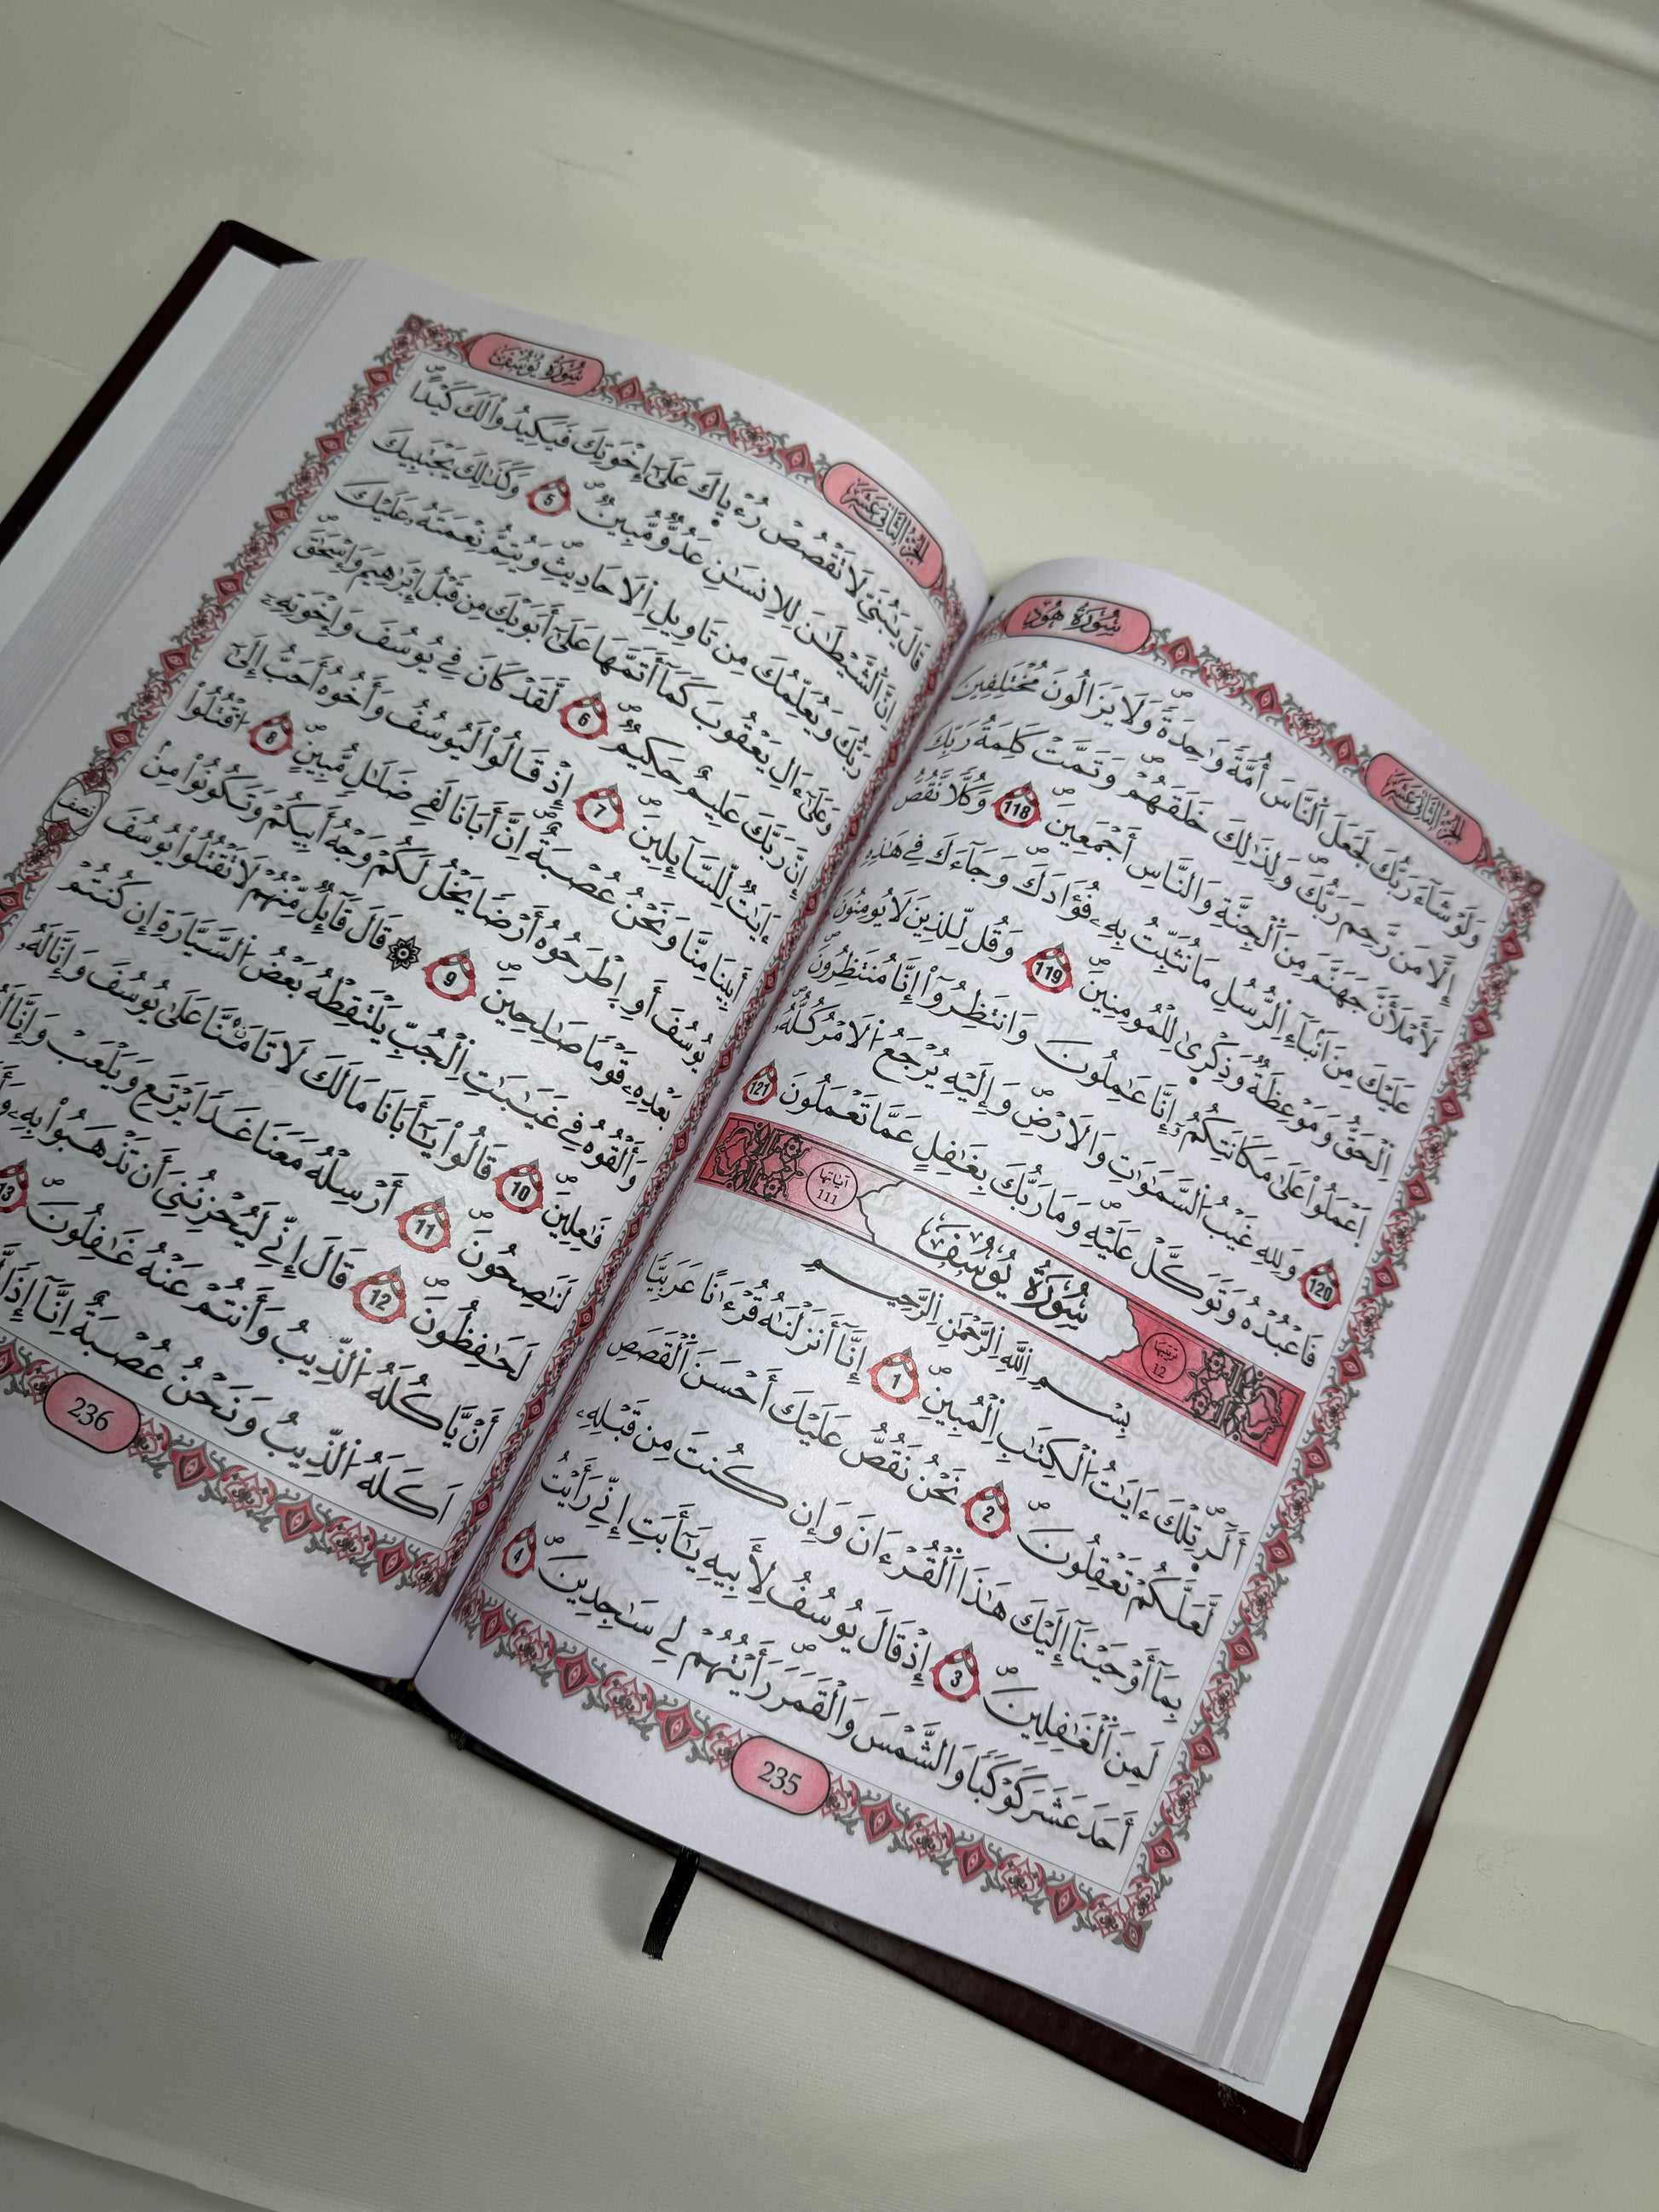 سُورَةُ هُودٍ
الجزء الثاني عشر
وَلَوْ شَآءَ رَبُّكَ لَجَعَلَ اَ۬لنَّاسَ أُمَّةٗ وَٰحِدَةٗۖ وَلَا يَزَالُونَ مُخْتَلِفِينَ
إِلَّا مَن رَّحِمَ رَبُّكَۖ وَلِذَٰلِكَ خَلَقَهُمْۖ وَتَمَّتْ كَلِمَةُ رَبِّكَ
لَأَمْلَأَنَّ جَهَنَّمَ مِنَ اَ۬لْجِنَّةِ وَالنَّاسِ أَجْمَعِينَۖ 118 وَكُلّاٗ نَّقُصُّ
عَلَيْكَ مِنَ اَنۢبَآءِ اِ۬لرُّسُلِ مَا نُثَبِّتُ بِهِۦ فُؤَادَكَۖ وَجَآءَكَ فِے هَٰذِهِ
اِ۬لْحَقُّ وَمَوْعِظَةٞ وَذِكْر۪يٰ لِلْمُومِنِينَۖ 119 وَقُل لِّلذِينَ لَا يُومِنُونَ
اَ۪عْمَلُواْ عَلَىٰ مَكَانَتِكُمُۥٓ إِنَّا عَٰمِلُونَ وَانتَظِرُوٓاْ إِنَّا مُنتَظِرُونَۖ
120 وَلِلهِ غَيْبُ اُ۬لسَّمَٰوَٰتِ وَالَارْضِۖ وَإِلَيْهِ يُرْجَعُ اُ۬لَامْرُ كُلُّهُۥۖ
فَاعْبُدْهُ وَتَوَكَّلْ عَلَيْهِۖ وَمَا رَبُّكَ بِغَٰفِلٍ عَمَّا تَعْمَلُونَۖ 121
ترتيبها 12 سُورَةُ يُوسُفَ آياتها 111
بِسْمِ اِ۬للَّهِ اِ۬لرَّحْمَٰنِ اِ۬لرَّحِيمِ
أَلَٓر۪ۖ تِلْكَ ءَايَٰتُ اُ۬لْكِتَٰبِ اِ۬لْمُبِينِۖ 1 إِنَّآ أَنزَلْنَٰهُ قُرْءَٰناً عَرَبِيّاٗ
لَّعَلَّكُمْ تَعْقِلُونَۖ 2 نَحْنُ نَقُصُّ عَلَيْكَ أَحْسَنَ اَ۬لْقَصَصِ
بِمَآ أَوْحَيْنَآ إِلَيْكَ هَٰذَا اَ۬لْقُرْءَانَ وَإِن كُنتَ مِن قَبْلِهِۦ
لَمِنَ اَ۬لْغَٰفِلِينَۖ 3 إِذْ قَالَ يُوسُفُ لِأَبِيهِ يَٰٓأَبَتِ إِنِّے رَأَيْتُ
أَحَدَ عَشَرَ كَوْكَباٗ وَالشَّمْسَ وَالْقَمَرَ رَأَيْتُهُمْ لِے سَٰجِدِينَۖ 4
235
الجزء الثاني عشر
سُورَةُ يُوسُفَ
قَالَ يَٰبُنَيِّ لَا تَقْصُصْ رُءْي۪اكَ عَلَىٰٓ إِخْوَتِكَ فَيَكِيدُواْ لَكَ كَيْداًۖ
اِنَّ اَ۬لشَّيْطَٰنَ لِلِانسَٰنِ عَدُوّٞ مُّبِينٞۖ 5 وَكَذَٰلِكَ يَجْتَبِيكَ
رَبُّكَ وَيُعَلِّمُكَ مِن تَاوِيلِ اِ۬لَاحَادِيثِۖ وَيُتِمُّ نِعْمَتَهُۥ عَلَيْكَ
وَعَلَىٰٓ ءَالِ يَعْقُوبَ كَمَآ أَتَمَّهَا عَلَىٰٓ أَبَوَيْكَ مِن قَبْلُ إِبْرَٰهِيمَ وَإِسْحَٰقَۖ
إِنَّ رَبَّكَ عَلِيمٌ حَكِيمٞۖ 6 لَّقَدْ كَانَ فِے يُوسُفَ وَإِخْوَتِهِۦٓ
ءَايَٰتٞ لِّلسَّآئِلِينَۖ 7 إِذْ قَالُواْ لَيُوسُفُ وَأَخُوهُ أَحَبُّ إِلَىٰٓ
أَبِينَا مِنَّا وَنَحْنُ عُصْبَةٌۖ اِنَّ أَبَانَا لَفِے ضَلَٰلٖ مُّبِينٍۖ 8 اُ۟قْتُلُواْ
يُوسُفَ أَوِ اِ۪طْرَحُوهُ أَرْضاٗ يَخْلُ لَكُمْ وَجْهُ أَبِيكُمْ وَتَكُونُواْ مِنۢ
بَعْدِهِۦ قَوْماٗ صَٰلِحِينَۖ 9 ۞ قَالَ قَآئِلٞ مِّنْهُمْ لَا تَقْتُلُواْ يُوسُفَ
نصف
وَأَلْقُوهُ فِے غَيَٰبَٰتِ اِ۬لْجُبِّ يَلْتَقِطْهُ بَعْضُ اُ۬لسَّيَّارَةِ إِن كُنتُمْ
فَٰعِلِينَۖ 10 قَالُواْ يَٰٓأَبَانَا مَا لَكَ لَا تَامَ۫نَّا عَلَىٰ يُوسُفَ وَإِنَّا لَهُۥ
لَنَٰصِحُونَۖ 11 أَرْسِلْهُ مَعَنَا غَداٗ يَرْتَعِ وَيَلْعَبْ وَإِنَّا
لَحَٰفِظُونَۖ 12 قَالَ إِنِّے لَيُحْزِنُنِيَ أَن تَذْهَبُواْ بِهِۦ
أَنْ يَّاكُلَهُ اُ۬لذِّيبُ وَأَنتُمْ عَنْهُ غَٰفِلُونَۖ 13
اَكَلَهُ اُ۬لذِّيبُ وَنَحْنُ عُصْبَةٌ اِنَّآ إِذاٗ
236